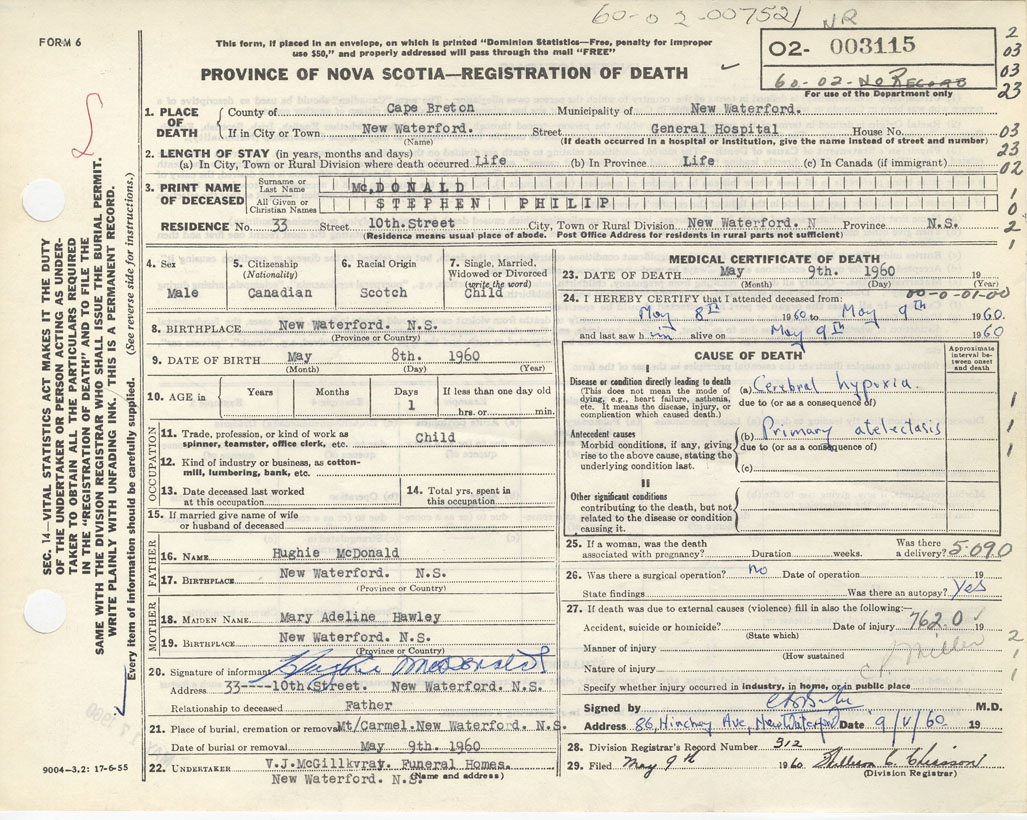 60-02-007521
NR
FORM 6
This form, if placed in an envelope, on which is printed "Dominion Statistics—Free, penalty for improper
use $50," and properly addressed will pass through the mail "FREE"
PROVINCE OF NOVA SCOTIA—REGISTRATION OF DEATH
02- 003115
60-02-No RECORD
For use of the Department only
2
03
03
23
03
23
02
1
0
2
1
1. PLACE OF DEATH
County of Cape Breton Municipality of New Waterford.
If in City or Town New Waterford. Street General Hospital House No.
(Name) (If death occurred in a hospital or institution, give the name instead of street and number)
2. LENGTH OF STAY (in years, months and days)
(a) In City, Town or Rural Division where death occurred Life (b) In Province Life (c) In Canada (if immigrant)
3. PRINT NAME OF DECEASED
Surname or Last Name McDONALD
All Given or Christian Names STEPHEN PHILIP
RESIDENCE No. 33 Street 10th.Street City, Town or Rural Division New Waterford. N Province N.S.
(Residence means usual place of abode. Post Office Address for residents in rural parts not sufficient)
SEC. 14—VITAL STATISTICS ACT MAKES IT THE DUTY
OF THE UNDERTAKER OR PERSON ACTING AS UNDER-
TAKER TO OBTAIN ALL THE PARTICULARS REQUIRED
IN THE "REGISTRATION OF DEATH" AND FILE THE
SAME WITH THE DIVISION REGISTRAR WHO SHALL ISSUE THE BURIAL PERMIT.
WRITE PLAINLY WITH UNFADING INK. THIS IS A PERMANENT RECORD.
Every item of information should be carefully supplied. (See reverse side for instructions.)
4. Sex
Male
5. Citizenship
(Nationality)
Canadian
6. Racial Origin
Scotch
7. Single, Married,
Widowed or Divorced
(write the word)
Child
8. BIRTHPLACE New Waterford. N.S.
(Province or Country)
9. DATE OF BIRTH May 8th. 1960
(Month) (Day) (Year)
10. AGE in
Years Months Days If less than one day old
1 hrs. or min.
OCCUPATION
11. Trade, profession, or kind of work as
spinner, teamster, office clerk, etc. Child
12. Kind of industry or business, as cotton-
mill, lumbering, bank, etc.
13. Date deceased last worked
at this occupation
14. Total yrs. spent in
this occupation
15. If married give name of wife
or husband of deceased
FATHER
16. NAME Hughie McDonald
17. BIRTHPLACE New Waterford. N.S.
(Province or Country)
MOTHER
18. MAIDEN NAME Mary Adeline Hawley
19. BIRTHPLACE New Waterford. N.S.
(Province or Country)
20. Signature of informant Hughie McDonald
Address 33----10th.Street. New Waterford. N.S.
Relationship to deceased Father
21. Place of burial, cremation or removal Mt/Carmel.New Waterford. N.S.
Date of burial or removal May 9th. 1960
22. UNDERTAKER V.J.McGillkvray. Funeral Homes.
New Waterford. N.S. (Name and address)
9004—3.2: 17-6-55
MEDICAL CERTIFICATE OF DEATH
23. DATE OF DEATH May 9th. 1960 19
(Month) (Day) (Year)
24. I HEREBY CERTIFY that I attended deceased from: 00-0-01-00
May 8th 1960 to May 9th 1960.
and last saw him alive on May 9th 1960
CAUSE OF DEATH
Approximate interval between onset and death
I
Disease or condition directly leading to death
(This does not mean the mode of
dying, e.g., heart failure, asthenia,
etc. It means the disease, injury, or
complication which caused death.)
(a) Cerebral hypoxia.
due to (or as a consequence of)
Antecedent causes
Morbid conditions, if any, giving
rise to the above cause, stating the
underlying condition last.
(b) Primary atelectasis
due to (or as a consequence of)
(c)
II
Other significant conditions
contributing to the death, but not
related to the disease or condition
causing it.
1
1
1
25. If a woman, was the death
associated with pregnancy? Duration weeks. Was there
a delivery? 5.090
26. Was there a surgical operation? no Date of operation 19
State findings Was there an autopsy? Yes
27. If death was due to external causes (violence) fill in also the following:—
Accident, suicide or homicide? Date of injury 762.0 19
(State which)
Manner of injury
(How sustained)
Miller
2
1
1
Nature of injury
Specify whether injury occurred in industry, in home, or in public place
Signed by M.D.
Address 86, Hinchey Ave, New Waterford Date 9/V/60 19
28. Division Registrar's Record Number 312
29. Filed May 9th 1960
(Division Registrar)